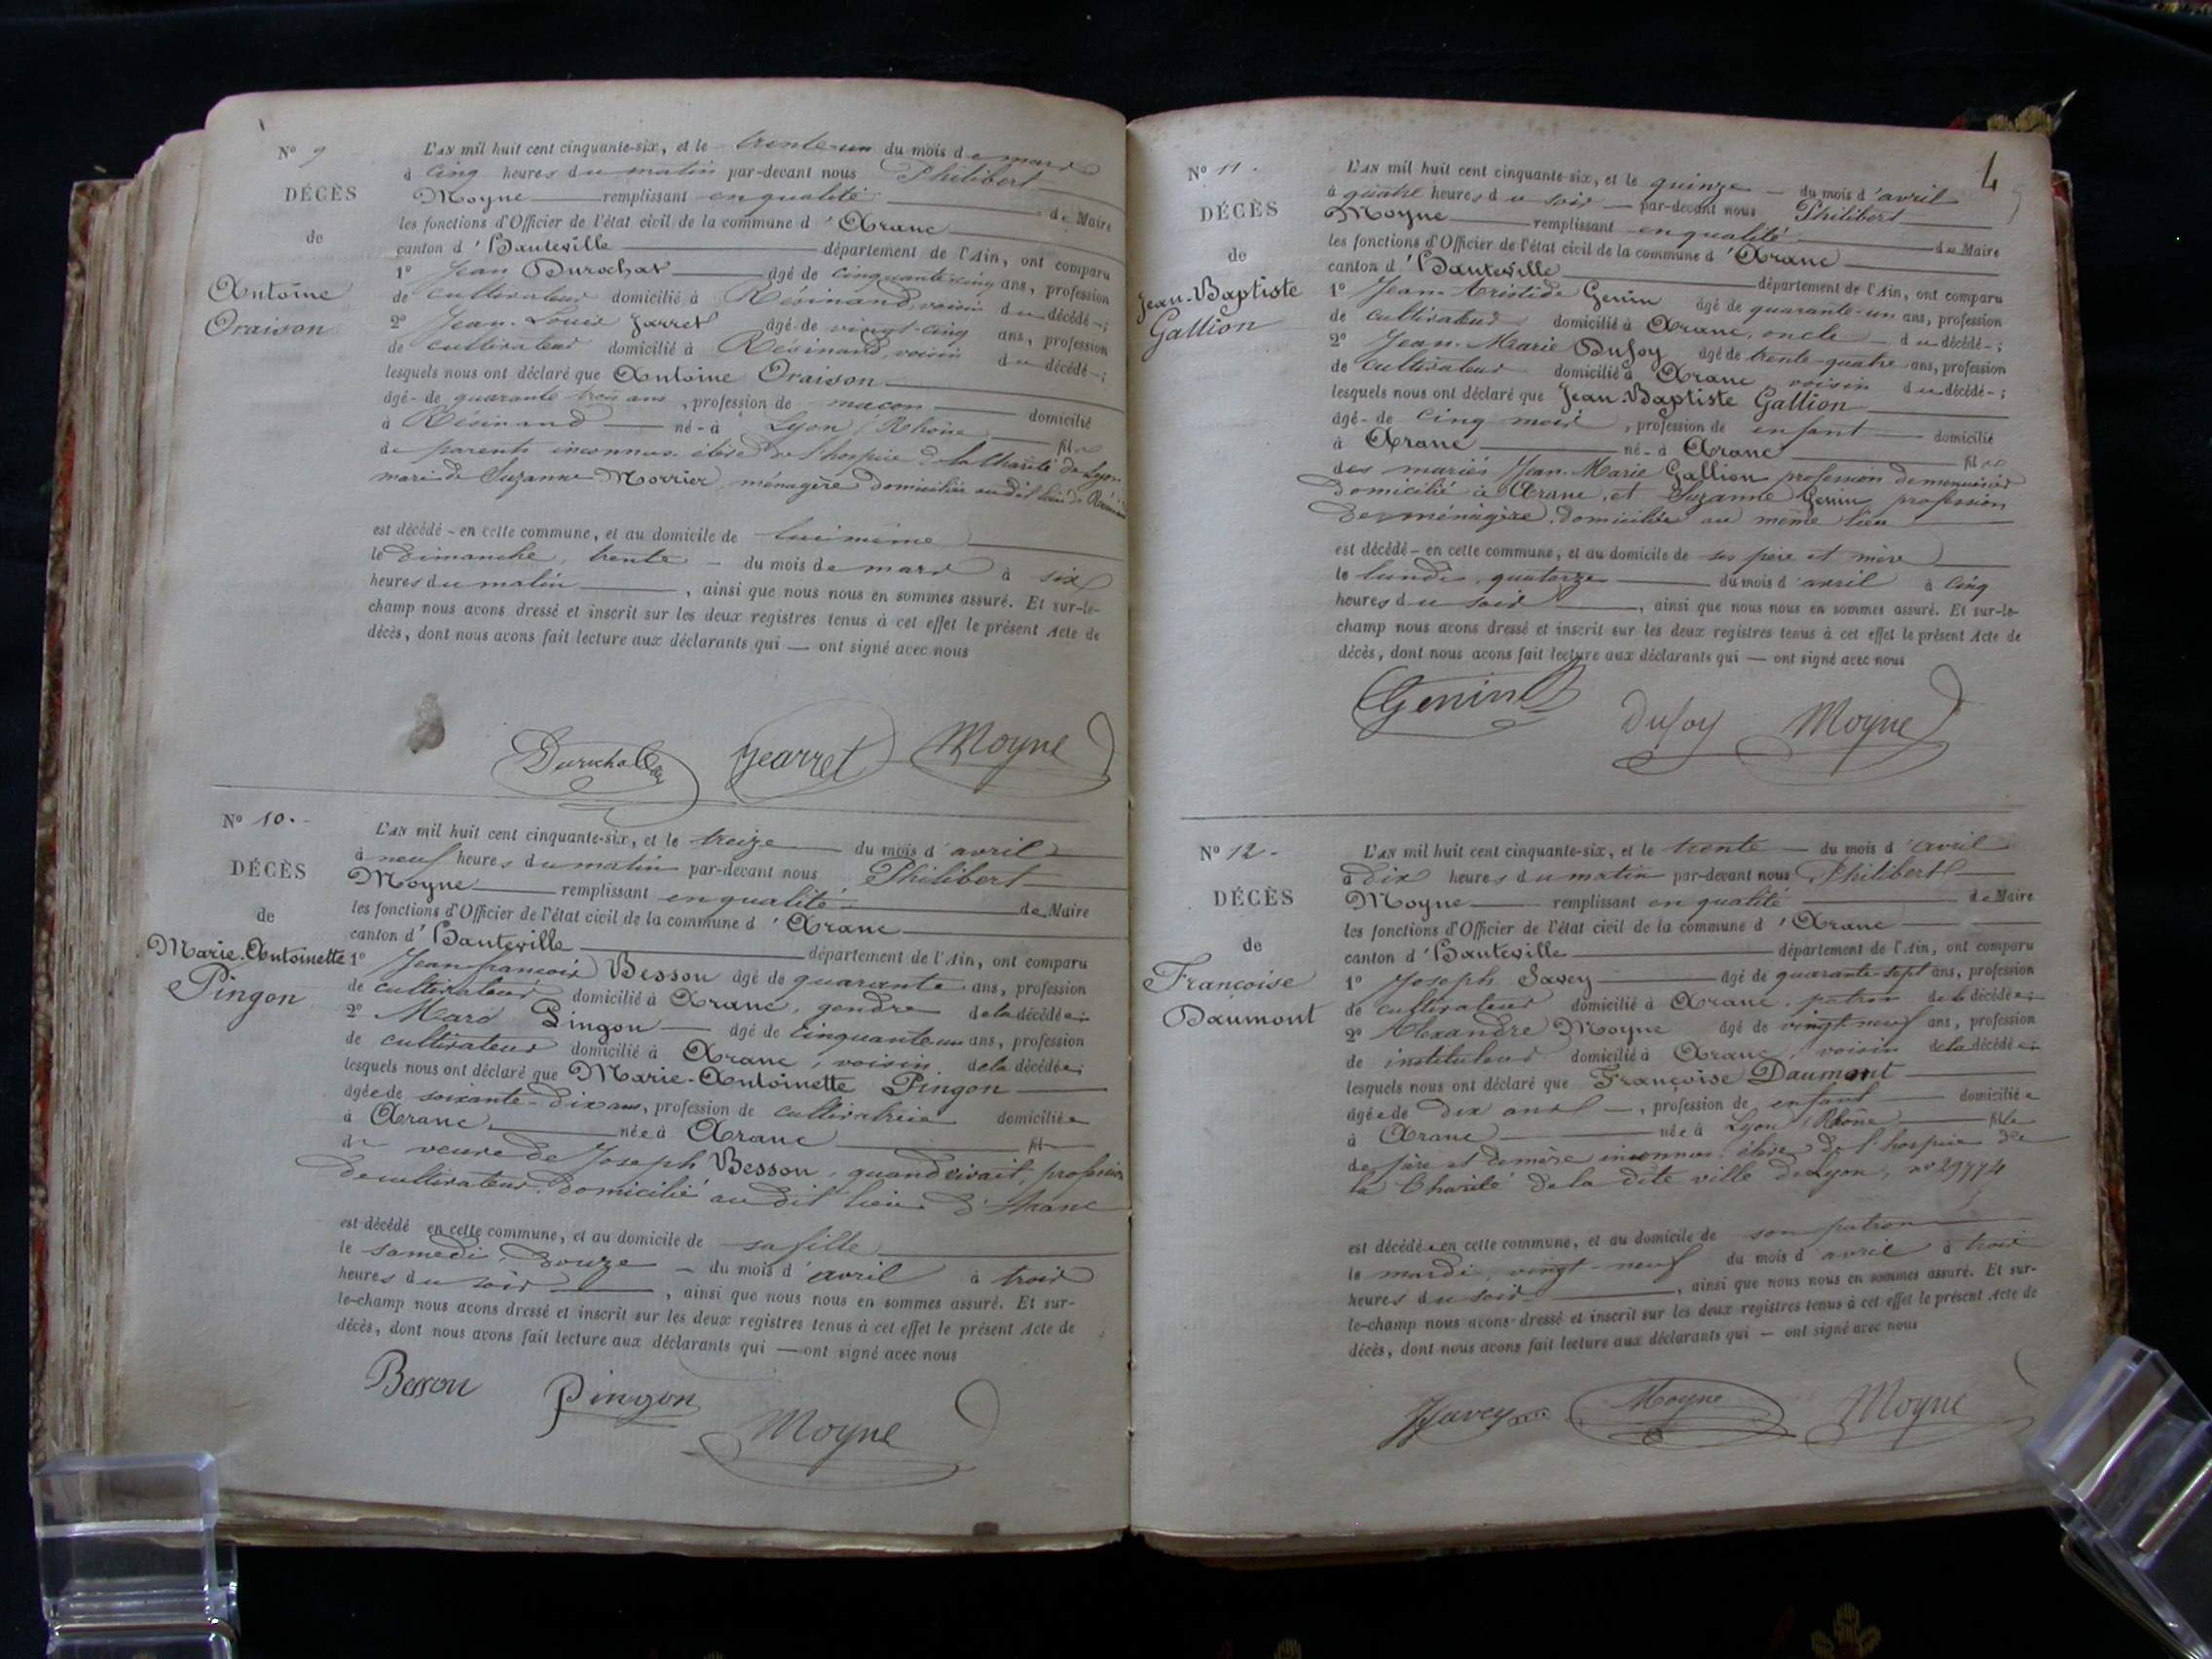 N° 9
DÉCÈS
de
Antoine
Oraison
L'AN mil huit cent cinquante-six, et le trente-un du mois de mars
à cinq heures du matin par-devant nous Philibert
Moyne remplissant en qualité de Maire
les fonctions d'Officier de l'état civil de la commune d'Aranc
canton d'Hauteville département de l'Ain, ont comparu
1° Jean Durochat âgé de cinquante-cinq ans, profession
de cultivateur domicilié à Résinand, voisin du décédé ;
2° Jean-Louis Jarret âgé de vingt-cinq ans, profession
de cultivateur domicilié à Résinand, voisin du décédé ;
lesquels nous ont déclaré que Antoine Oraison
âgé de quarante trois ans, profession de maçon domicilié
à Résinand né à Lyon, Rhône fils
de parents inconnus élève de l'hospice de la Charité de Lyon
mari de Suzanne Morrier, ménagère domiciliée audit lieu de
est décédé en cette commune, et au domicile de lui même
le Dimanche, trente du mois de mars à six
heures du matin, ainsi que nous nous en sommes assuré. Et sur-le-
champ nous avons dressé et inscrit sur les deux registres tenus à cet effet le présent Acte de
décès, dont nous avons fait lecture aux déclarants qui — ont signé avec nous
Durochat Jearret Moyne
N° 10.
DÉCÈS
de
Marie-Antoinette
Pingon
L'AN mil huit cent cinquante-six, et le treize du mois d'avril
à neuf heures du matin par-devant nous Philibert
Moyne remplissant en qualité de Maire
les fonctions d'Officier de l'état civil de la commune d'Aranc
canton d'Hauteville département de l'Ain, ont comparu
1° Jean françois Besson âgé de quarante ans, profession
de cultivateur domicilié à Aranc, gendre de la décédée ;
2° Marc Pingon âgé de cinquante un ans, profession
de cultivateur domicilié à Aranc, voisin de la décédée ;
lesquels nous ont déclaré que Marie-Antoinette Pingon
âgée de soixante-dix ans, profession de cultivatrice domiciliée
à Aranc née à Aranc fil
de veuve de Joseph Besson, quand vivait, profession
de cultivateur, domicilié au dit lieu d'Aranc
est décédé en cette commune, et au domicile de sa fille
le samedi, douze du mois d'avril à trois
heures du soir, ainsi que nous nous en sommes assuré. Et sur-
le-champ nous avons dressé et inscrit sur les deux registres tenus à cet effet le présent Acte de
décès, dont nous avons fait lecture aux déclarants qui — ont signé avec nous
Besson Pingon Moyne
4
N° 11.
DÉCÈS
de
Jean-Baptiste
Gallion
L'AN mil huit cent cinquante-six, et le quinze du mois d'avril
à quatre heures du soir par-devant nous Philibert
Moyne remplissant en qualité de Maire
les fonctions d'Officier de l'état civil de la commune d'Aranc
canton d'Hauteville département de l'Ain, ont comparu
1° Jean-Aristide Genin âgé de quarante-un ans, profession
de cultivateur domicilié à Aranc, oncle du décédé ;
2° Jean-Marie Dufoy âgé de trente-quatre ans, profession
de cultivateur domicilié à Aranc, voisin du décédé ;
lesquels nous ont déclaré que Jean-Baptiste Gallion
âgé de cinq mois, profession de enfant domicilié
à Aranc né à Aranc fils
des mariés Jean-Marie Gallion profession de menuisier
domicilié à Aranc, et Suzanne Genin, profession
de ménagère, domiciliée au même lieu
est décédé en cette commune, et au domicile de ses père et mère
le lundi, quatorze du mois d'avril à cinq
heures du soir, ainsi que nous nous en sommes assuré. Et sur-le-
champ nous avons dressé et inscrit sur les deux registres tenus à cet effet le présent Acte de
décès, dont nous avons fait lecture aux déclarants qui — ont signé avec nous
Genin Dufoy Moyne
N° 12.
DÉCÈS
de
Françoise
Daumont
L'AN mil huit cent cinquante-six, et le trente du mois d'avril
à dix heures du matin par-devant nous Philibert
Moyne remplissant en qualité de Maire
les fonctions d'Officier de l'état civil de la commune d'Aranc
canton d'Hauteville département de l'Ain, ont comparu
1° Joseph Savey âgé de quarante-sept ans, profession
de cultivateur domicilié à Aranc, patron de la décédée ;
2° Alexandre Moyne âgé de vingt-neuf ans, profession
de instituteur domicilié à Aranc, voisin de la décédée ;
lesquels nous ont déclaré que Françoise Daumont
âgée de dix ans, profession de enfant domiciliée
à Aranc née à Lyon, Rhône fille
de père et de mère inconnus élève de l'hospice de
la Charité de la dite ville de Lyon, n° 39774
est décédée en cette commune, et au domicile de son patron
le mardi, vingt-neuf du mois d'avril à trois
heures du soir, ainsi que nous nous en sommes assuré. Et sur-
le-champ nous avons dressé et inscrit sur les deux registres tenus à cet effet le présent Acte de
décès, dont nous avons fait lecture aux déclarants qui — ont signé avec nous
JSavey Moyne Moyne